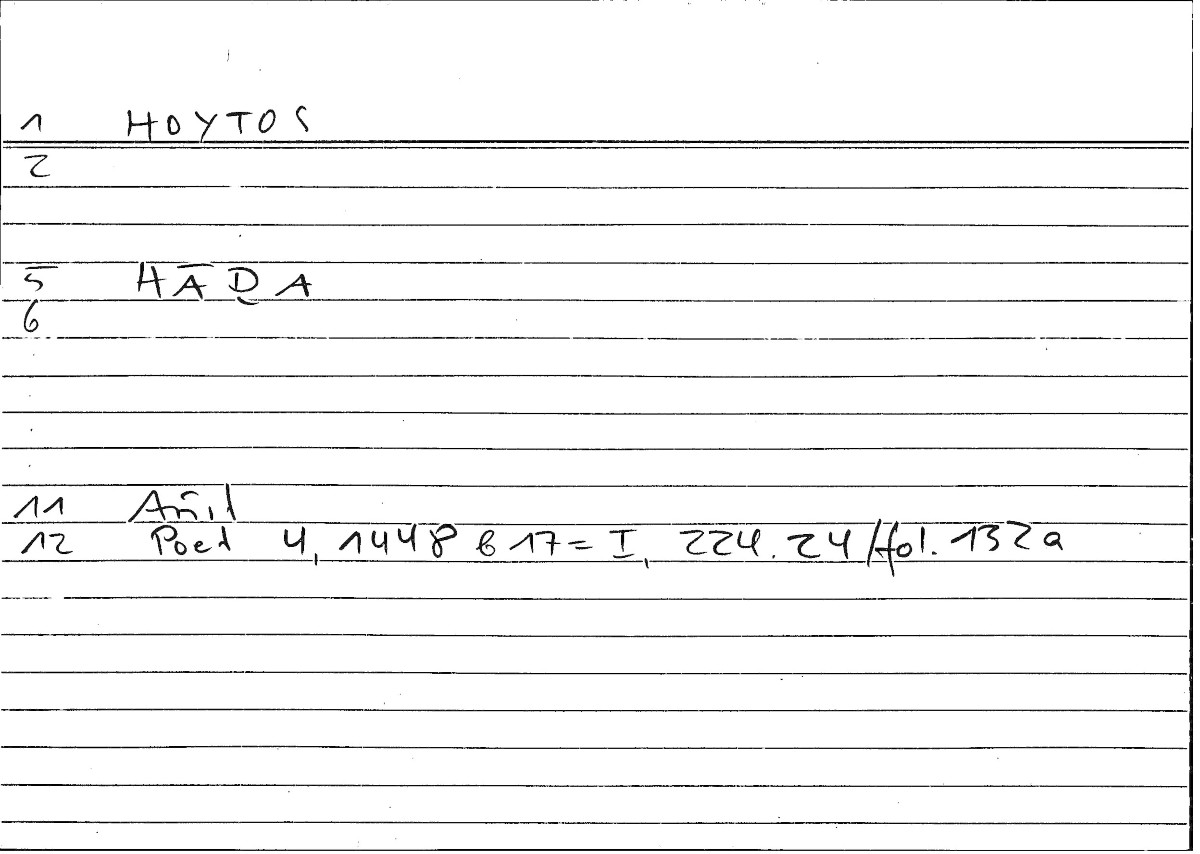 1 HOYTOS
2
5 HĀḎA
6
11 Arist
12 Poet 4, 1448 b 17 = I, 224.24/fol. 132a